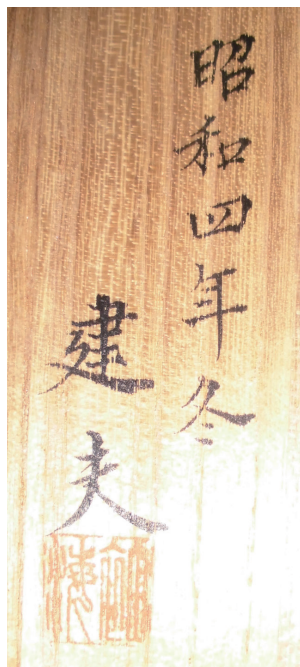 昭和四年冬
建夫